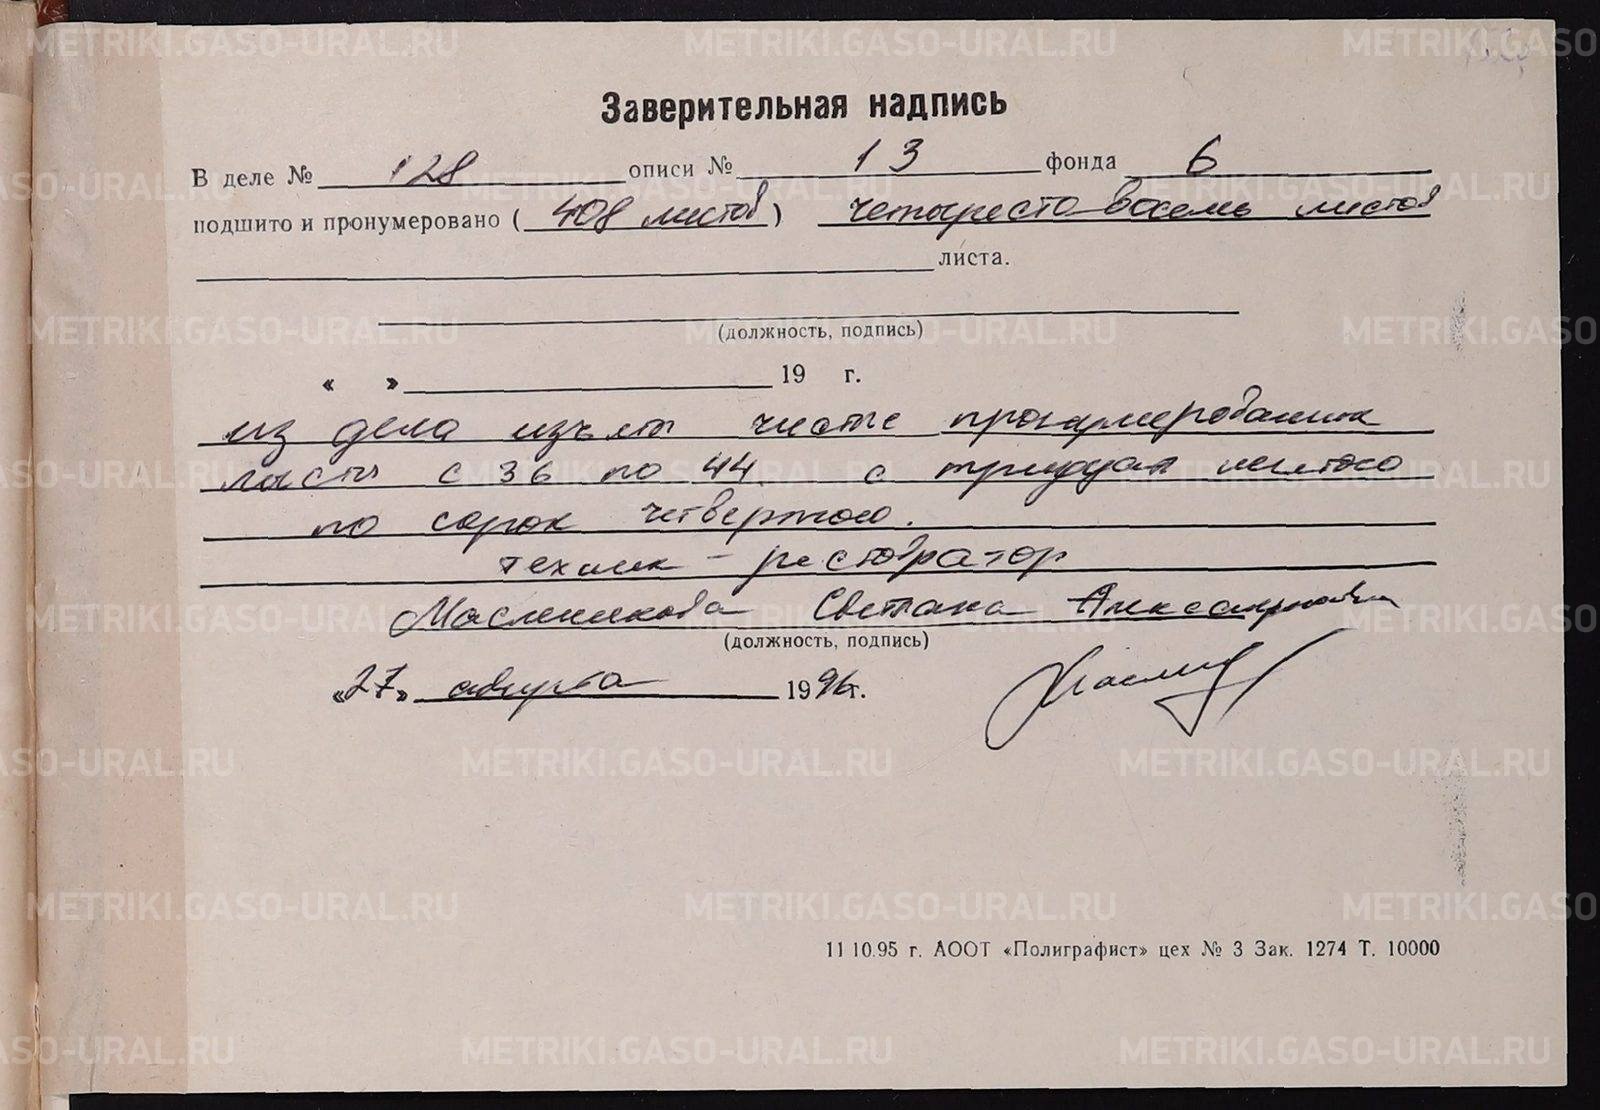 Заверительная надпись
В деле № 128 описи № 13 фонда 6
подшито и пронумеровано (408 листов) четыреста восемь листов
листа.
(должность, подпись)
« » 19 г.
из дела изъяты чистые пронумерованные
листы с 36 по 44 с тридцать шестого
по сорок четвертого.
техник – реставратор
Масленникова Светлана Александровна
(должность, подпись)
«27» августа 1996г.
11 10.95 г. АООТ «Полиграфист» цех № 3 Зак. 1274 Т. 10000
METRIKI.GASO-URAL.RU